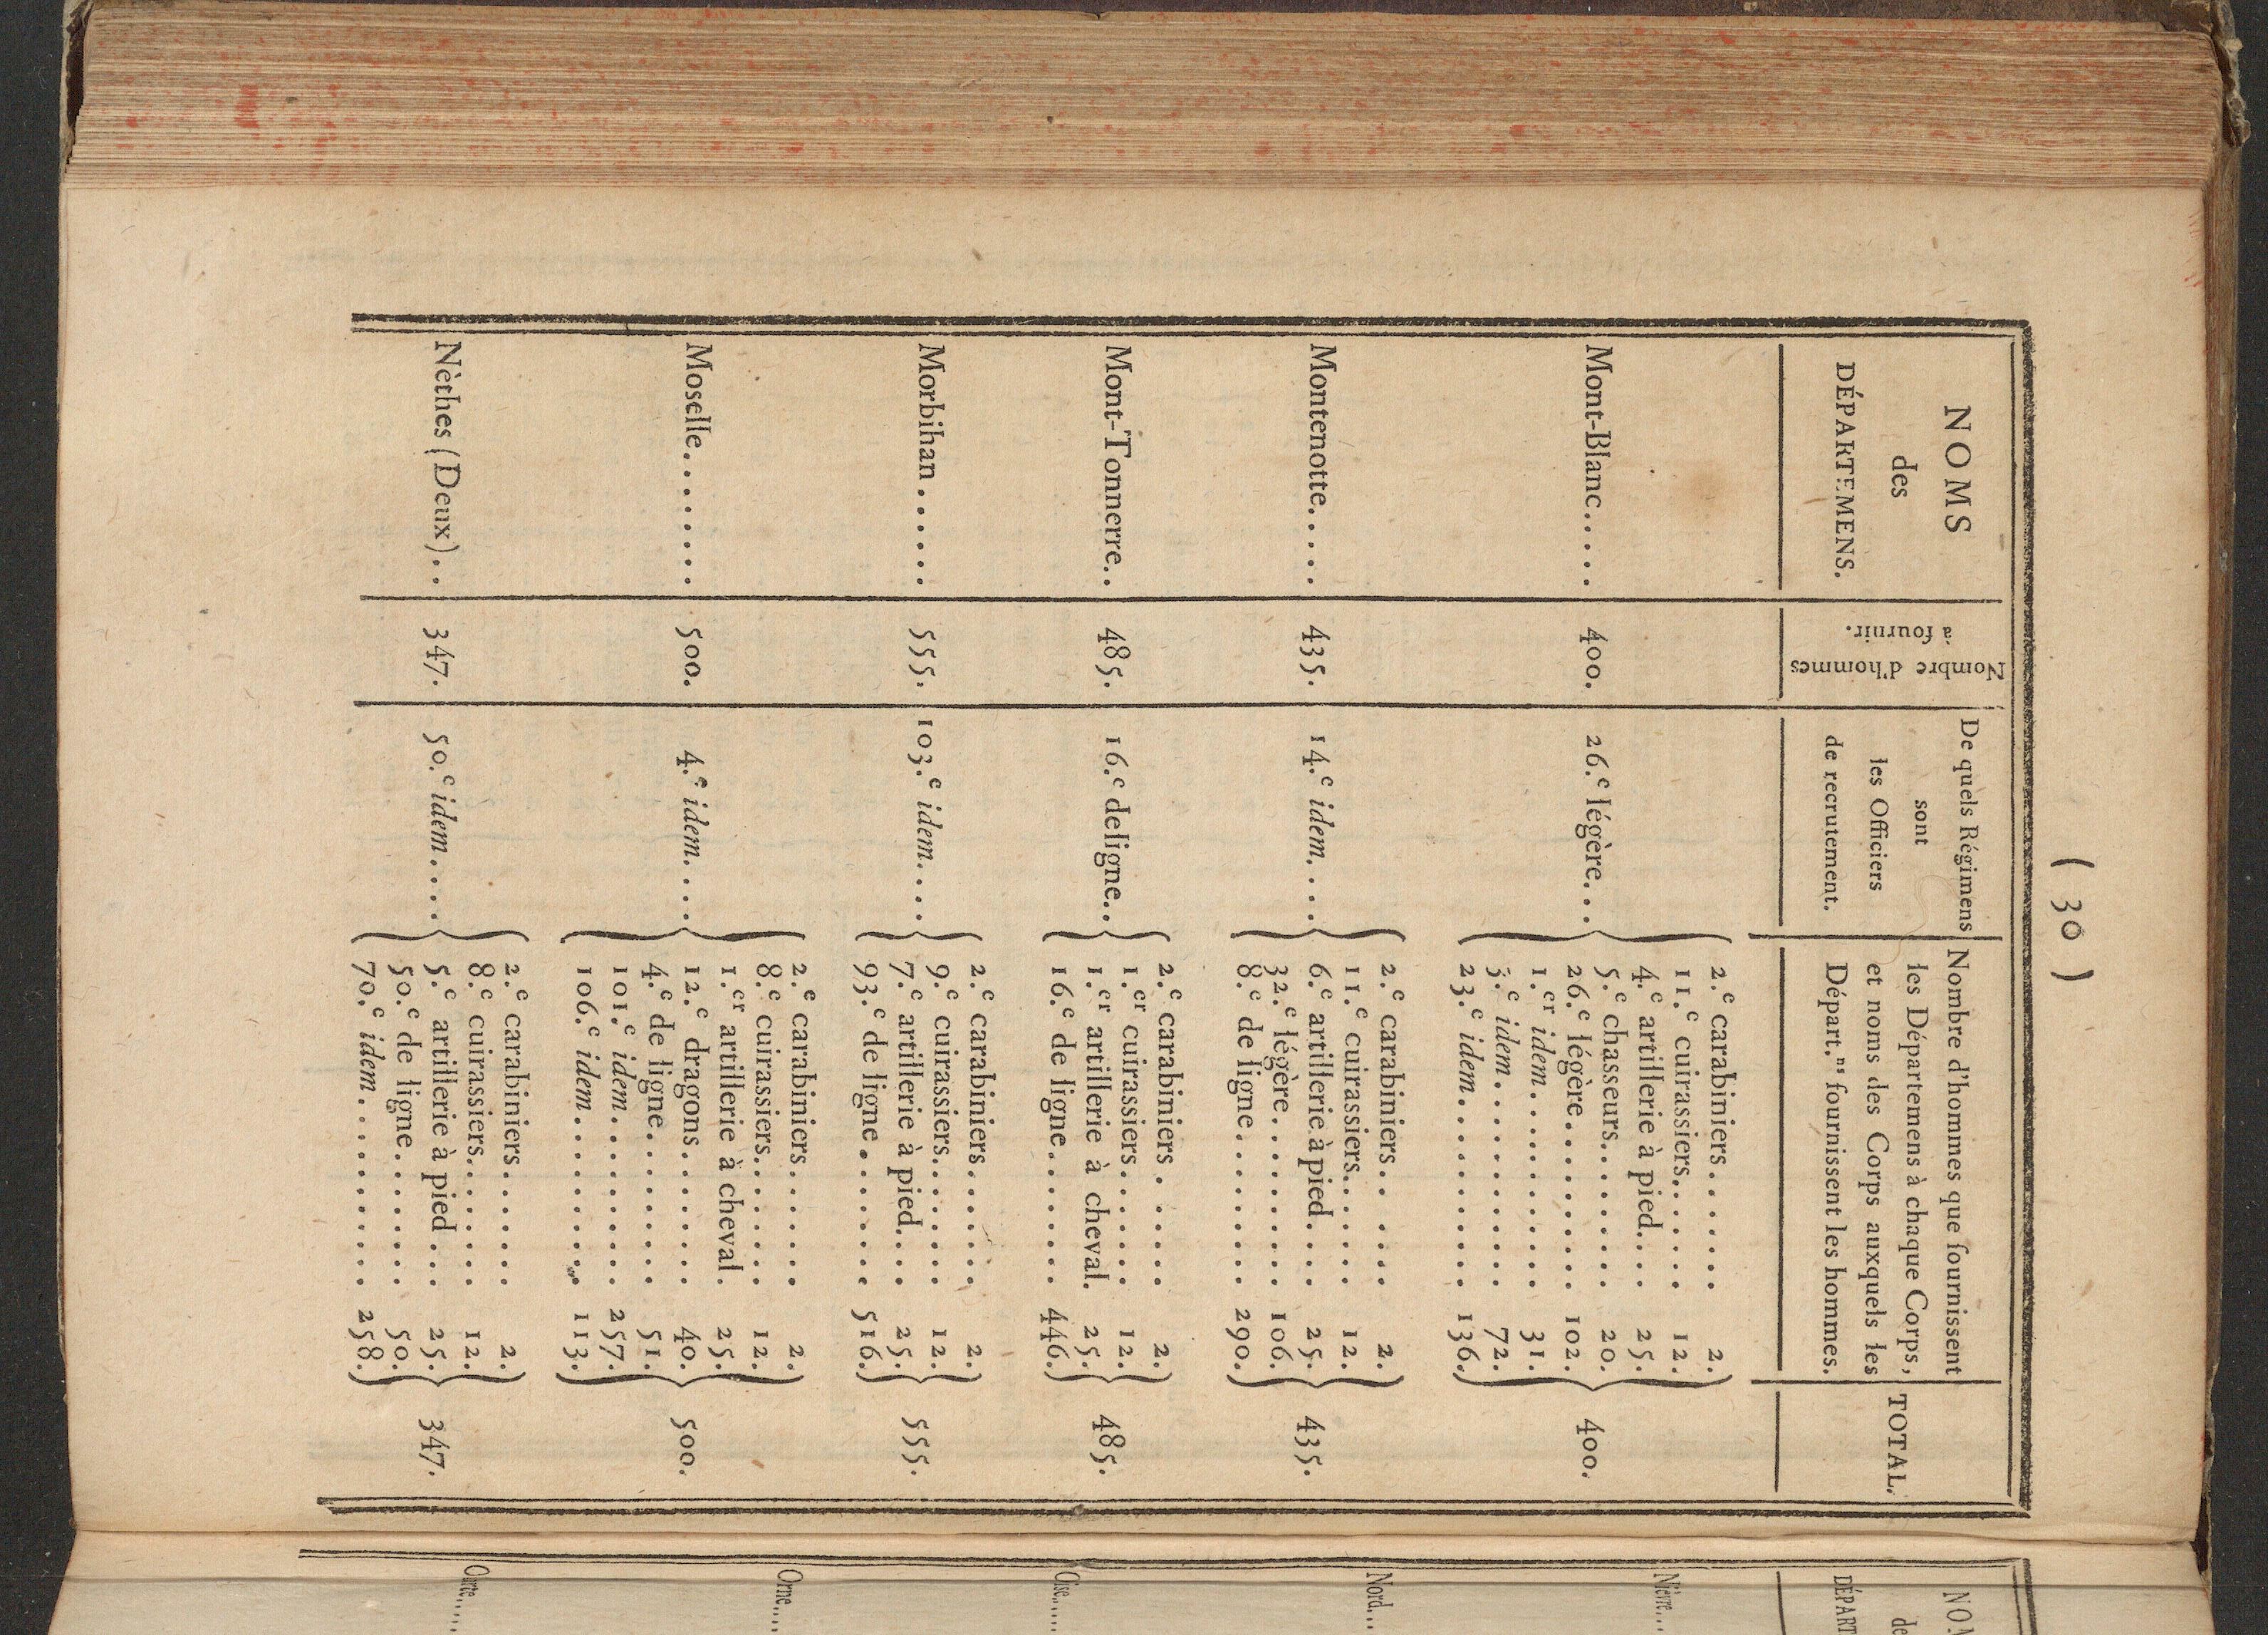 ( 30 )
NOMS
des
DÉPARTEMENS.
Nombre d'hommes
à fournir.
De quels Régimens
sont
les Officiers
de recrutement.
Nombre d'hommes que fournissent
les Départemens à chaque Corps,
et noms des Corps auxquels les
Départ.ns fournissent les hommes.
TOTAL.
Mont-Blanc..... 400. 26.e légère...
2.e carabiniers....... 2.
11.e cuirassiers....... 12.
4.e artillerie à pied.... 25.
5.e chasseurs......... 20.
26.e légère.......... 102.
1.er idem............ 31.
3.e idem............ 72.
23.e idem........... 136.
400.
Montenotte..... 435. 14.e idem....
2.e carabiniers...... 2.
11.e cuirassiers....... 12.
6.e artillerie à pied.... 25.
32.e légère.......... 106.
8.e de ligne......... 290.
435.
Mont-Tonnerre.. 485. 16.e de ligne..
2.e carabiniers...... 2.
1.er cuirassiers....... 12.
1.er artillerie à cheval. 25.
16.e de ligne........ 446.
485.
Morbihan...... 555. 103.e idem....
2.e carabiniers....... 2.
9.e cuirassiers........ 12.
7.e artillerie à pied.... 25.
93.e de ligne........ 516.
555.
Moselle........ 500. 4.e idem....
2.e carabiniers....... 2.
8.e cuirassiers........ 12.
1.er artillerie à cheval. 25.
12.e dragons........ 40.
4.e de ligne......... 51.
101.e idem.......... 257.
106.e idem.......... 113.
500.
Nèthes (Deux).. 347. 50.e idem....
2.e carabiniers....... 2.
8.e cuirassiers........ 12.
5.e artillerie à pied... 25.
50.e de ligne........ 50.
70.e idem........... 258.
347.
NOM
de
DÉPART
Nièvre...
Nord...
Oise.....
Orne....
Ourte.....